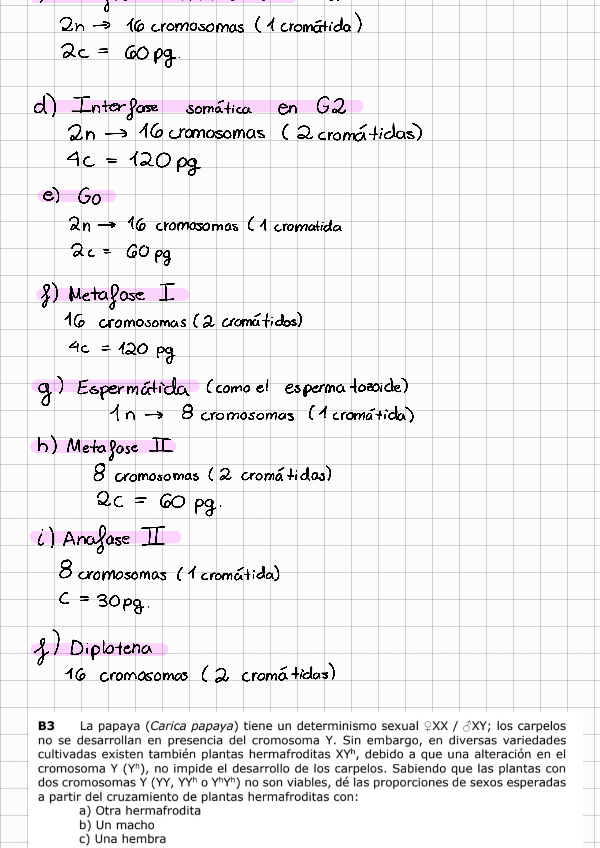 2n → 16 cromosomas (1 cromátida)
2c = 60 pg.
d) Interfase somática en G2
2n → 16 cromosomas (2 cromátidas)
4c = 120 pg
e) Go
2n → 16 cromosomas (1 cromatida
2c = 60 pg
f) Metafase I
16 cromosomas (2 cromátidas)
4c = 120 pg
g) Espermátida (como el espermatozoide)
1n → 8 cromosomas (1 cromátida)
h) Metafase II
8 cromosomas (2 cromátidas)
2c = 60 pg.
i) Anafase II
8 cromosomas (1 cromátida)
c = 30 pg.
f) Diplotena
16 cromosomas (2 cromátidas)
B3 La papaya (Carica papaya) tiene un determinismo sexual ♀XX / ♂XY; los carpelos
no se desarrollan en presencia del cromosoma Y. Sin embargo, en diversas variedades
cultivadas existen también plantas hermafroditas XYʰ, debido a que una alteración en el
cromosoma Y (Yʰ), no impide el desarrollo de los carpelos. Sabiendo que las plantas con
dos cromosomas Y (YY, YYʰ o YʰYʰ) no son viables, dé las proporciones de sexos esperadas
a partir del cruzamiento de plantas hermafroditas con:
a) Otra hermafrodita
b) Un macho
c) Una hembra